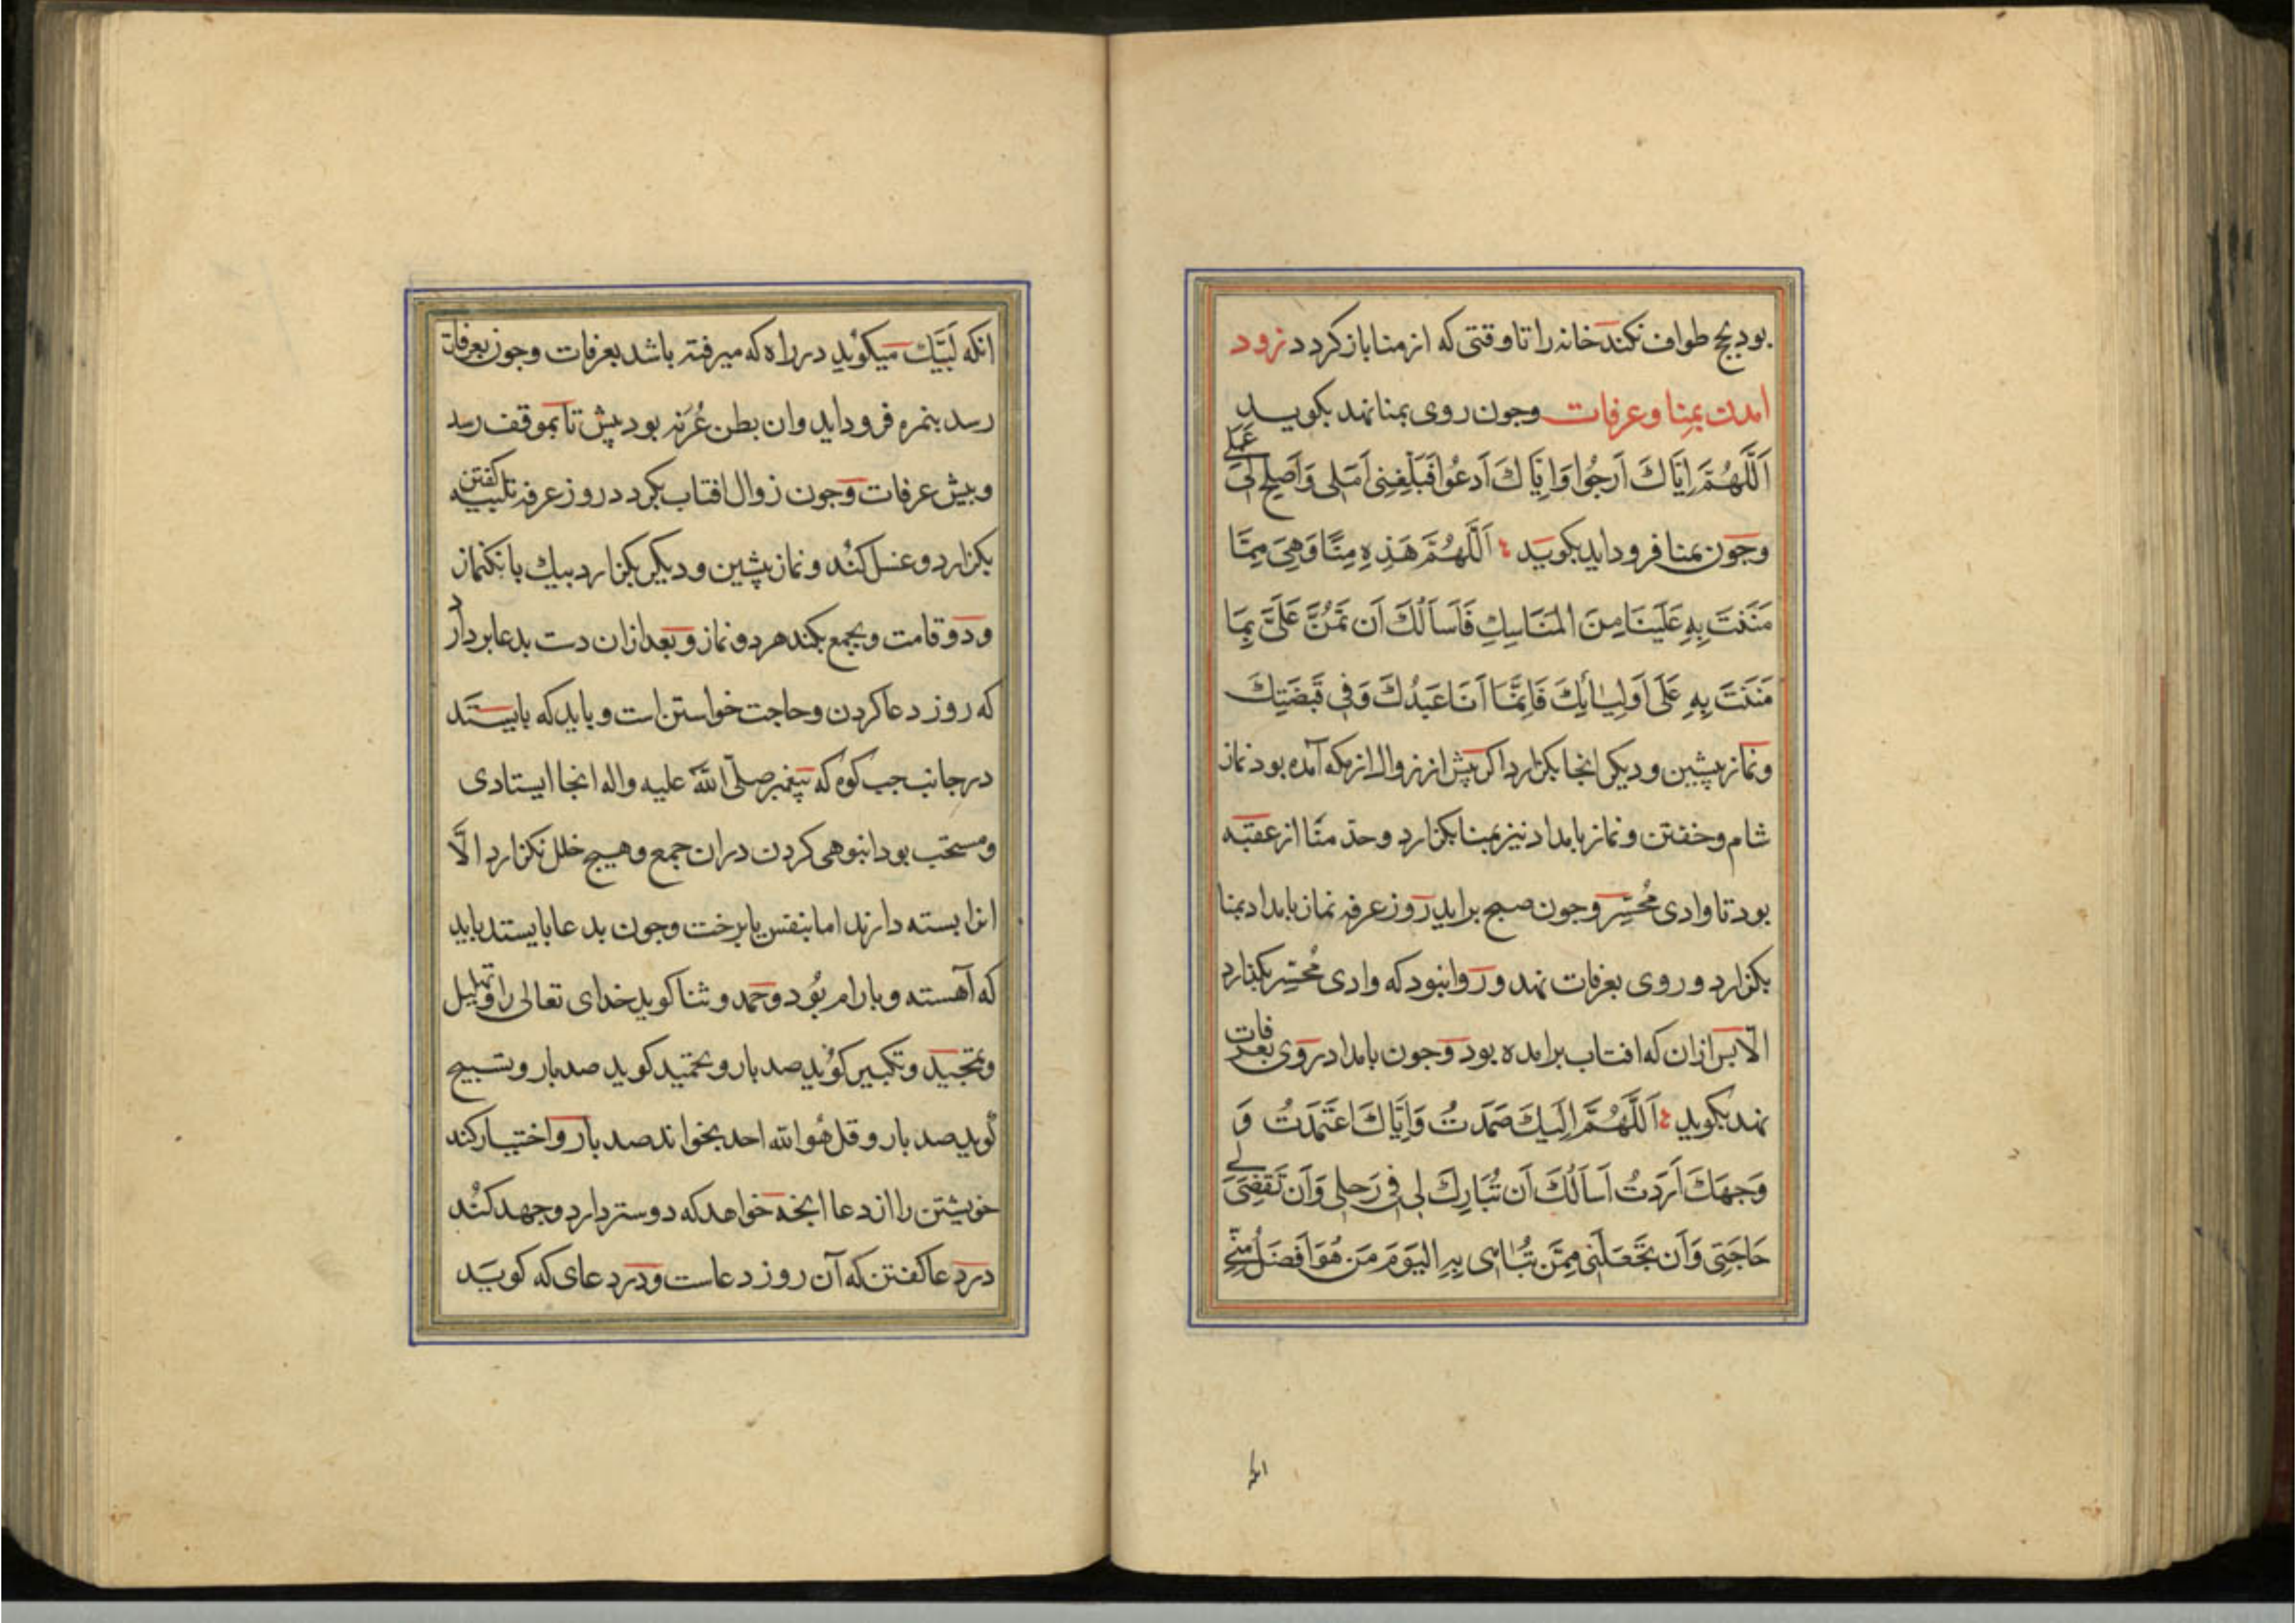 بود بحج طواف نکند خانه را تا وقتی که از منا باز کردد نرود
امدن بمِنا و عرفات وجون روی بمنا نهد بکوید
اَللَّهُمَّ اِیَّاكَ اَرجُوا وَاِیَّاكَ اَدعُوا فَبَلِّغنِی اَمَلی وَاَصلِح لی عَمَلی
وجون بمنا فرود اید بکوید اَللَّهُمَّ هَذِهِ مِنًا وَهِیَ مِمَّا
مَنَنتَ بِهِ عَلَینَا مِنَ المَنَاسِكِ فَاَسأَلُكَ اَن تَمُنَّ عَلَیَّ بِمَا
مَنَنتَ بِهِ عَلَی اَولِیَائِكَ فَاِنَّمَا اَنَا عَبدُكَ وَفی قَبضَتِكَ
ونماز پیشین ودیکر انجا بکزارد اکر پیش از زوال از مکه آمده بود نماز
شام وخفتن ونماز بامداد نیز بمنا بکزارد وحدّ منًا از عقبَه
بود تا وادی مُحسِّر وجون صبح براید روز عرفه نماز بامداد بمنا
بکزارد وروی بعرفات نهد وروا نبود که وادی مُحسِّر بکذارد
الّا پس ازان که افتاب برامده بود وجون بامداد روی بعرفات
نهد بکوید اَللَّهُمَّ اِلَیكَ صَمَدتُ وَاِیَّاكَ اعتَمَدتُ وَ
وَجهَكَ اَرَدتُ اَسأَلُكَ اَن تُبَارِكَ لی فی رَحلی وَاَن تَقضِیَ لی
حَاجَتِی وَاَن تَجعَلَنِی مِمَّن تُبَاهی بِهِ الیَومَ مَن هُوَ اَفضَلُ مِنّی
انکه
انکه لَبَّیك میکوید در راه که میرفته باشد بعرفات وجون بعرفات
رسد بنمره فرود اید وان بطن عُرَنه بود پیش تا بموقف رسد
وپیش عرفات وجون زوال افتاب بکردد روز عرفه تلبیه کفتن
بکزارد وغسل کند ونماز پیشین ودیکر بکزارد بیك بانك نماز
ودو قامت وبجمع بکند هر دو نماز وبعد ازان دست بدعا بردارد
که روز دعا کردن وحاجت خواستن است وباید که بایستَد
در جانب جب کوه که پیغمبر صلّی اللّه علیه واله انجا ایستادی
ومستحب بود انبوهی کردن دران جمع وهیج خلل نکزارد الّا
انرا بسته دارند اما بنفس یا برخت وجون بدعا بایستد باید
که آهسته وبارام بُود وحمد وثنا کوید خدای تعالی را وتهلیل
وتمجید وتکبیر کوید صد بار وتحمید کوید صد بار وتسبیح
کوید صد بار وقل هُو اللّه احد بخواند صد بار واختیار کند
خویشتن را از دعا انجه خواهد که دوستر دارد وجهد کُند
در دعا کفتن که آن روز دعاست ودر دعای که کویَد